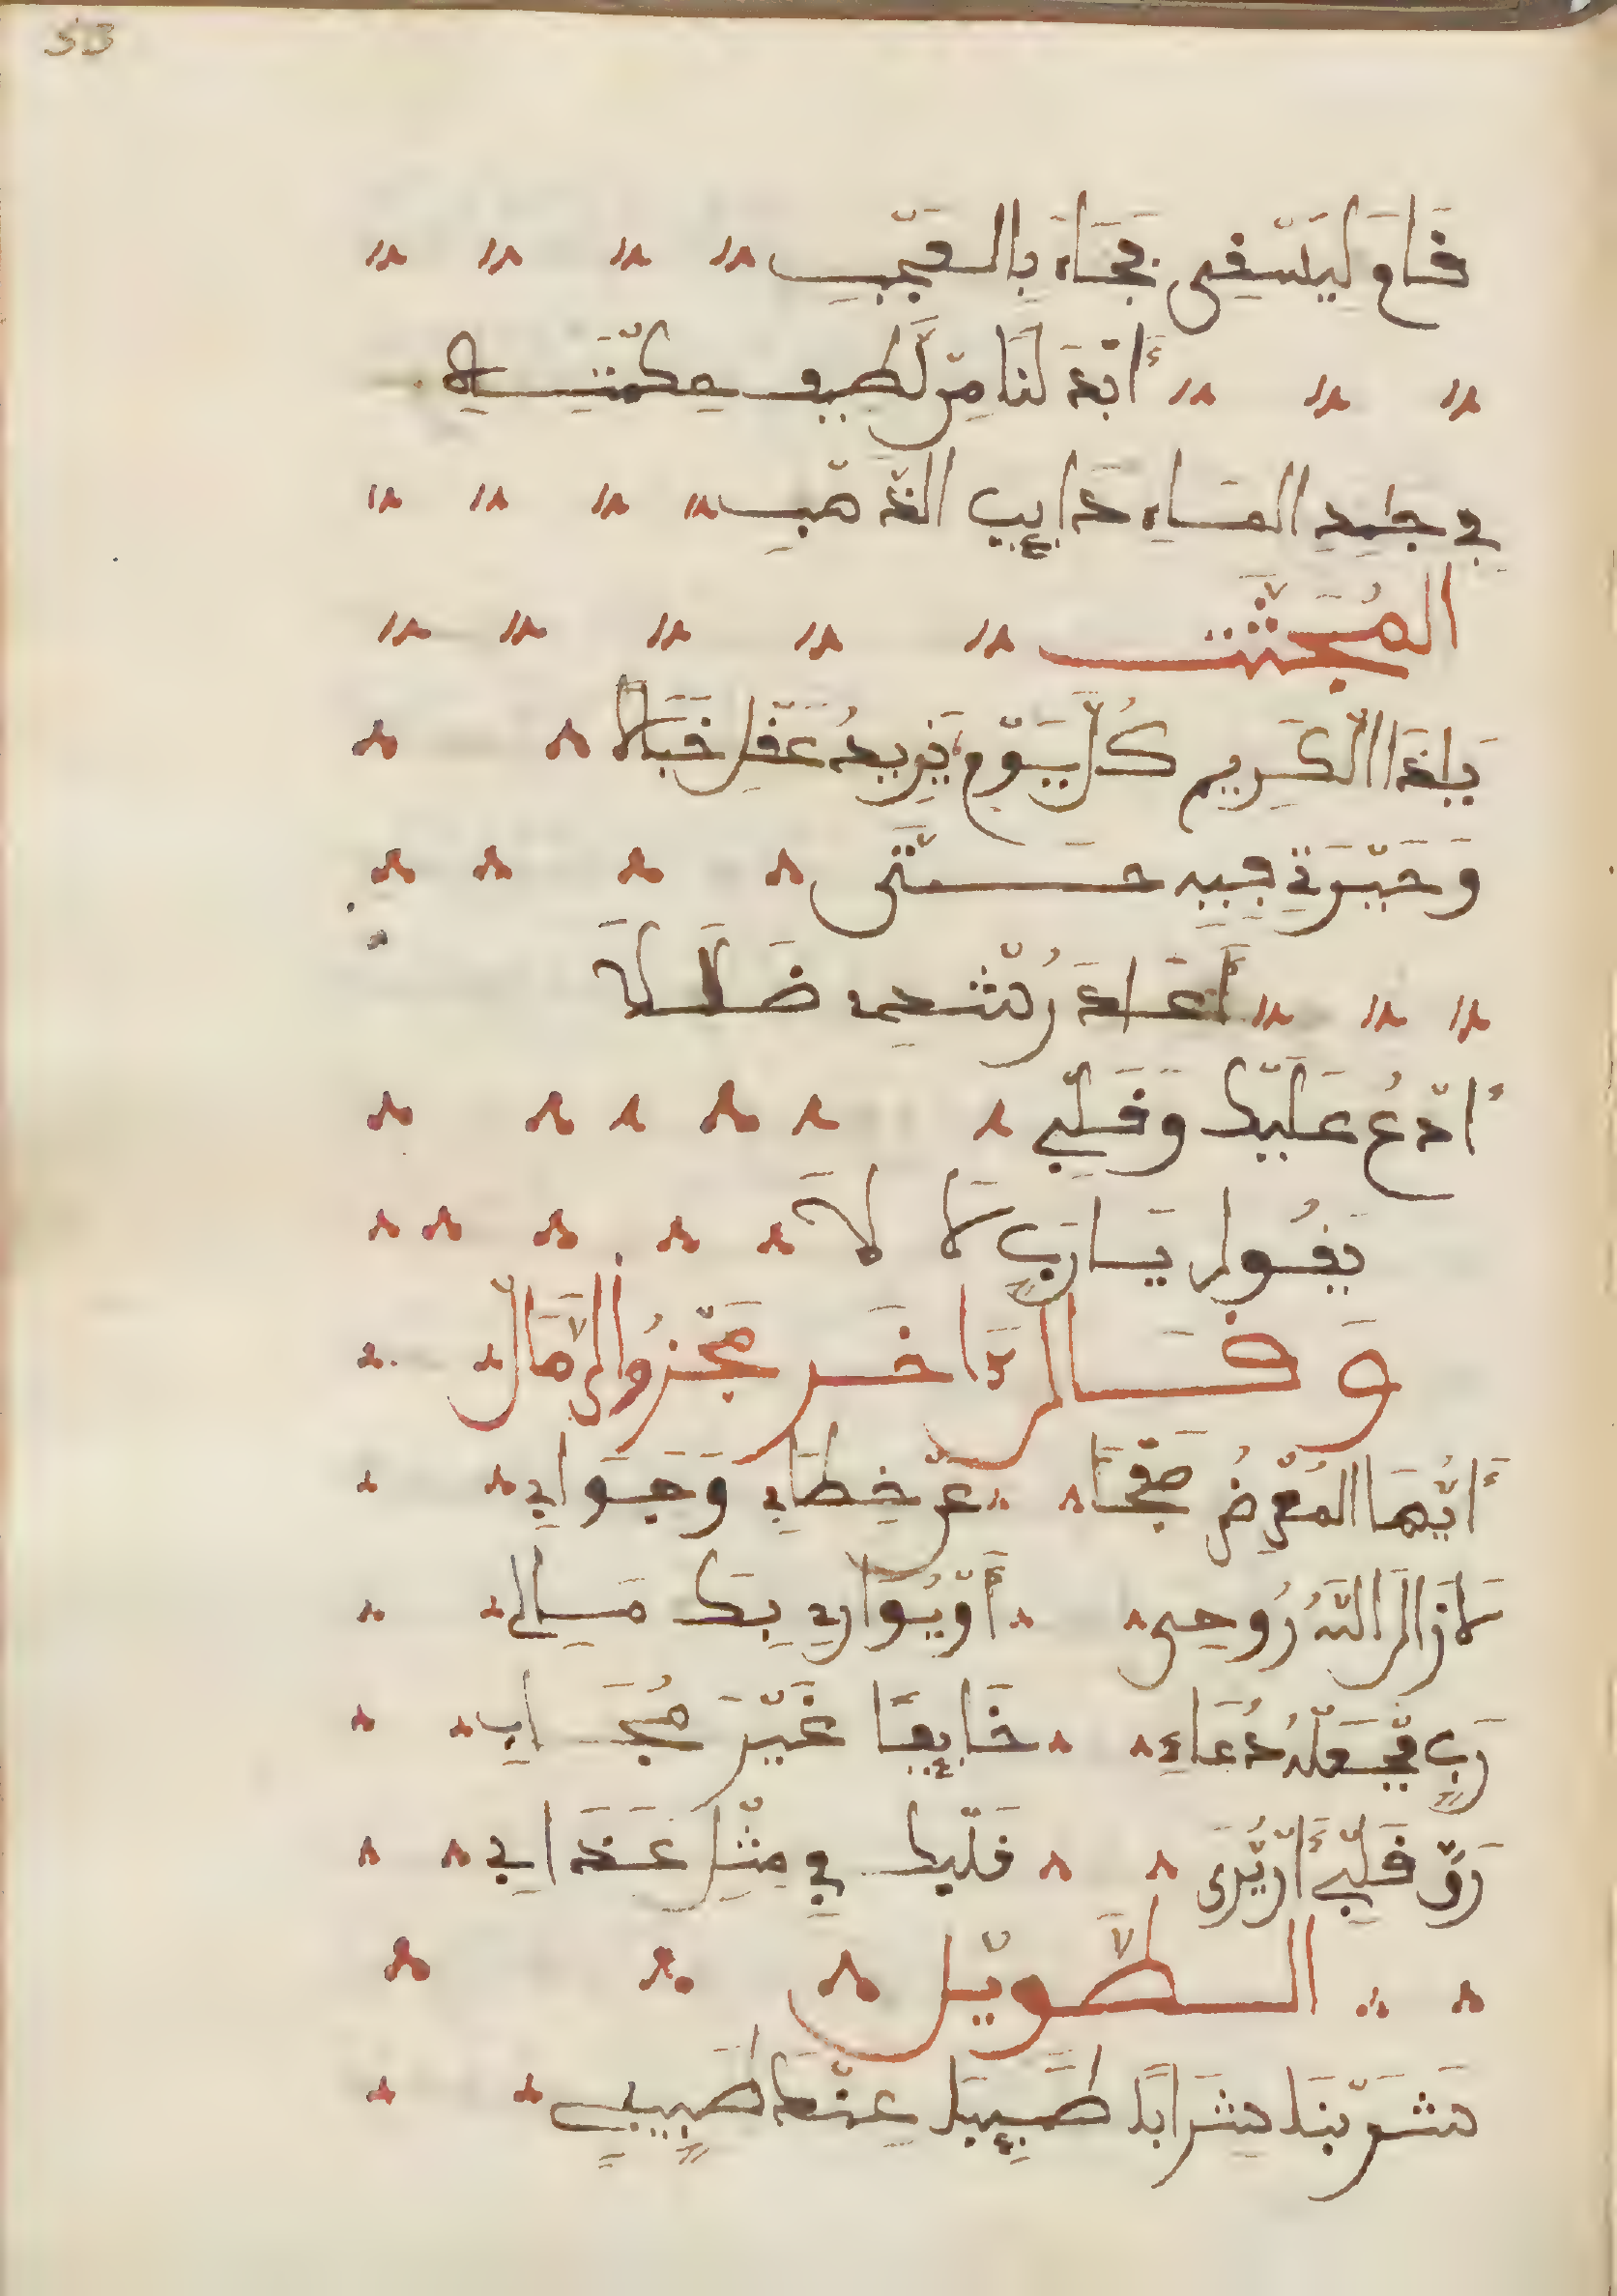 53
فَامَ لِيَسْفِي فَجَاءَ بِالْعَجَبِ
أَبْدَ لَنَا مِن لَّطِيفِ حِكْمَتِهِ
فِي جَامِدِ الْمَاءِ ذَايِبَ الذَّهَبِ
الْمُجْتَثّ
يَا ذَا الَّذِي كُلَّ يَوْمٍ يَزِيدُ عَقْلِي خَبَالَا
وَحَيْرَتِي فِيهِ حَتَّى
أَعَادَ رُشْدِي ضَلَالَا
أَدْعُ عَلَيْكَ وَقَلْبِي
يَقُولُ يَا رَبِّ لَا لَا
وَقَالَ ءَاخَر مَجْزُو الرَّمَلْ
أَيُّهَا الْمُعْرِضُ صَفْحًا عَنْ خِطَابِي وَجَوَابِي
لَا أَزَالَ اللَّهُ رُوحِي أَوْ يُوَارِي بِكَ مَا بِي
رَبِّ فَجْعَلْهُ دُعَاءً خَايِبًا غَيْرَ مُجَابِ
رَقَّ قَلْبِي أَنْ يُّرَى قَلْبُكَ فِي مِثْلِ عَذَابِي
الطَّوِيل
شَرِبْنَا شَرَابًا طَيِّبًا عِنْدَ طَيِّبٍ